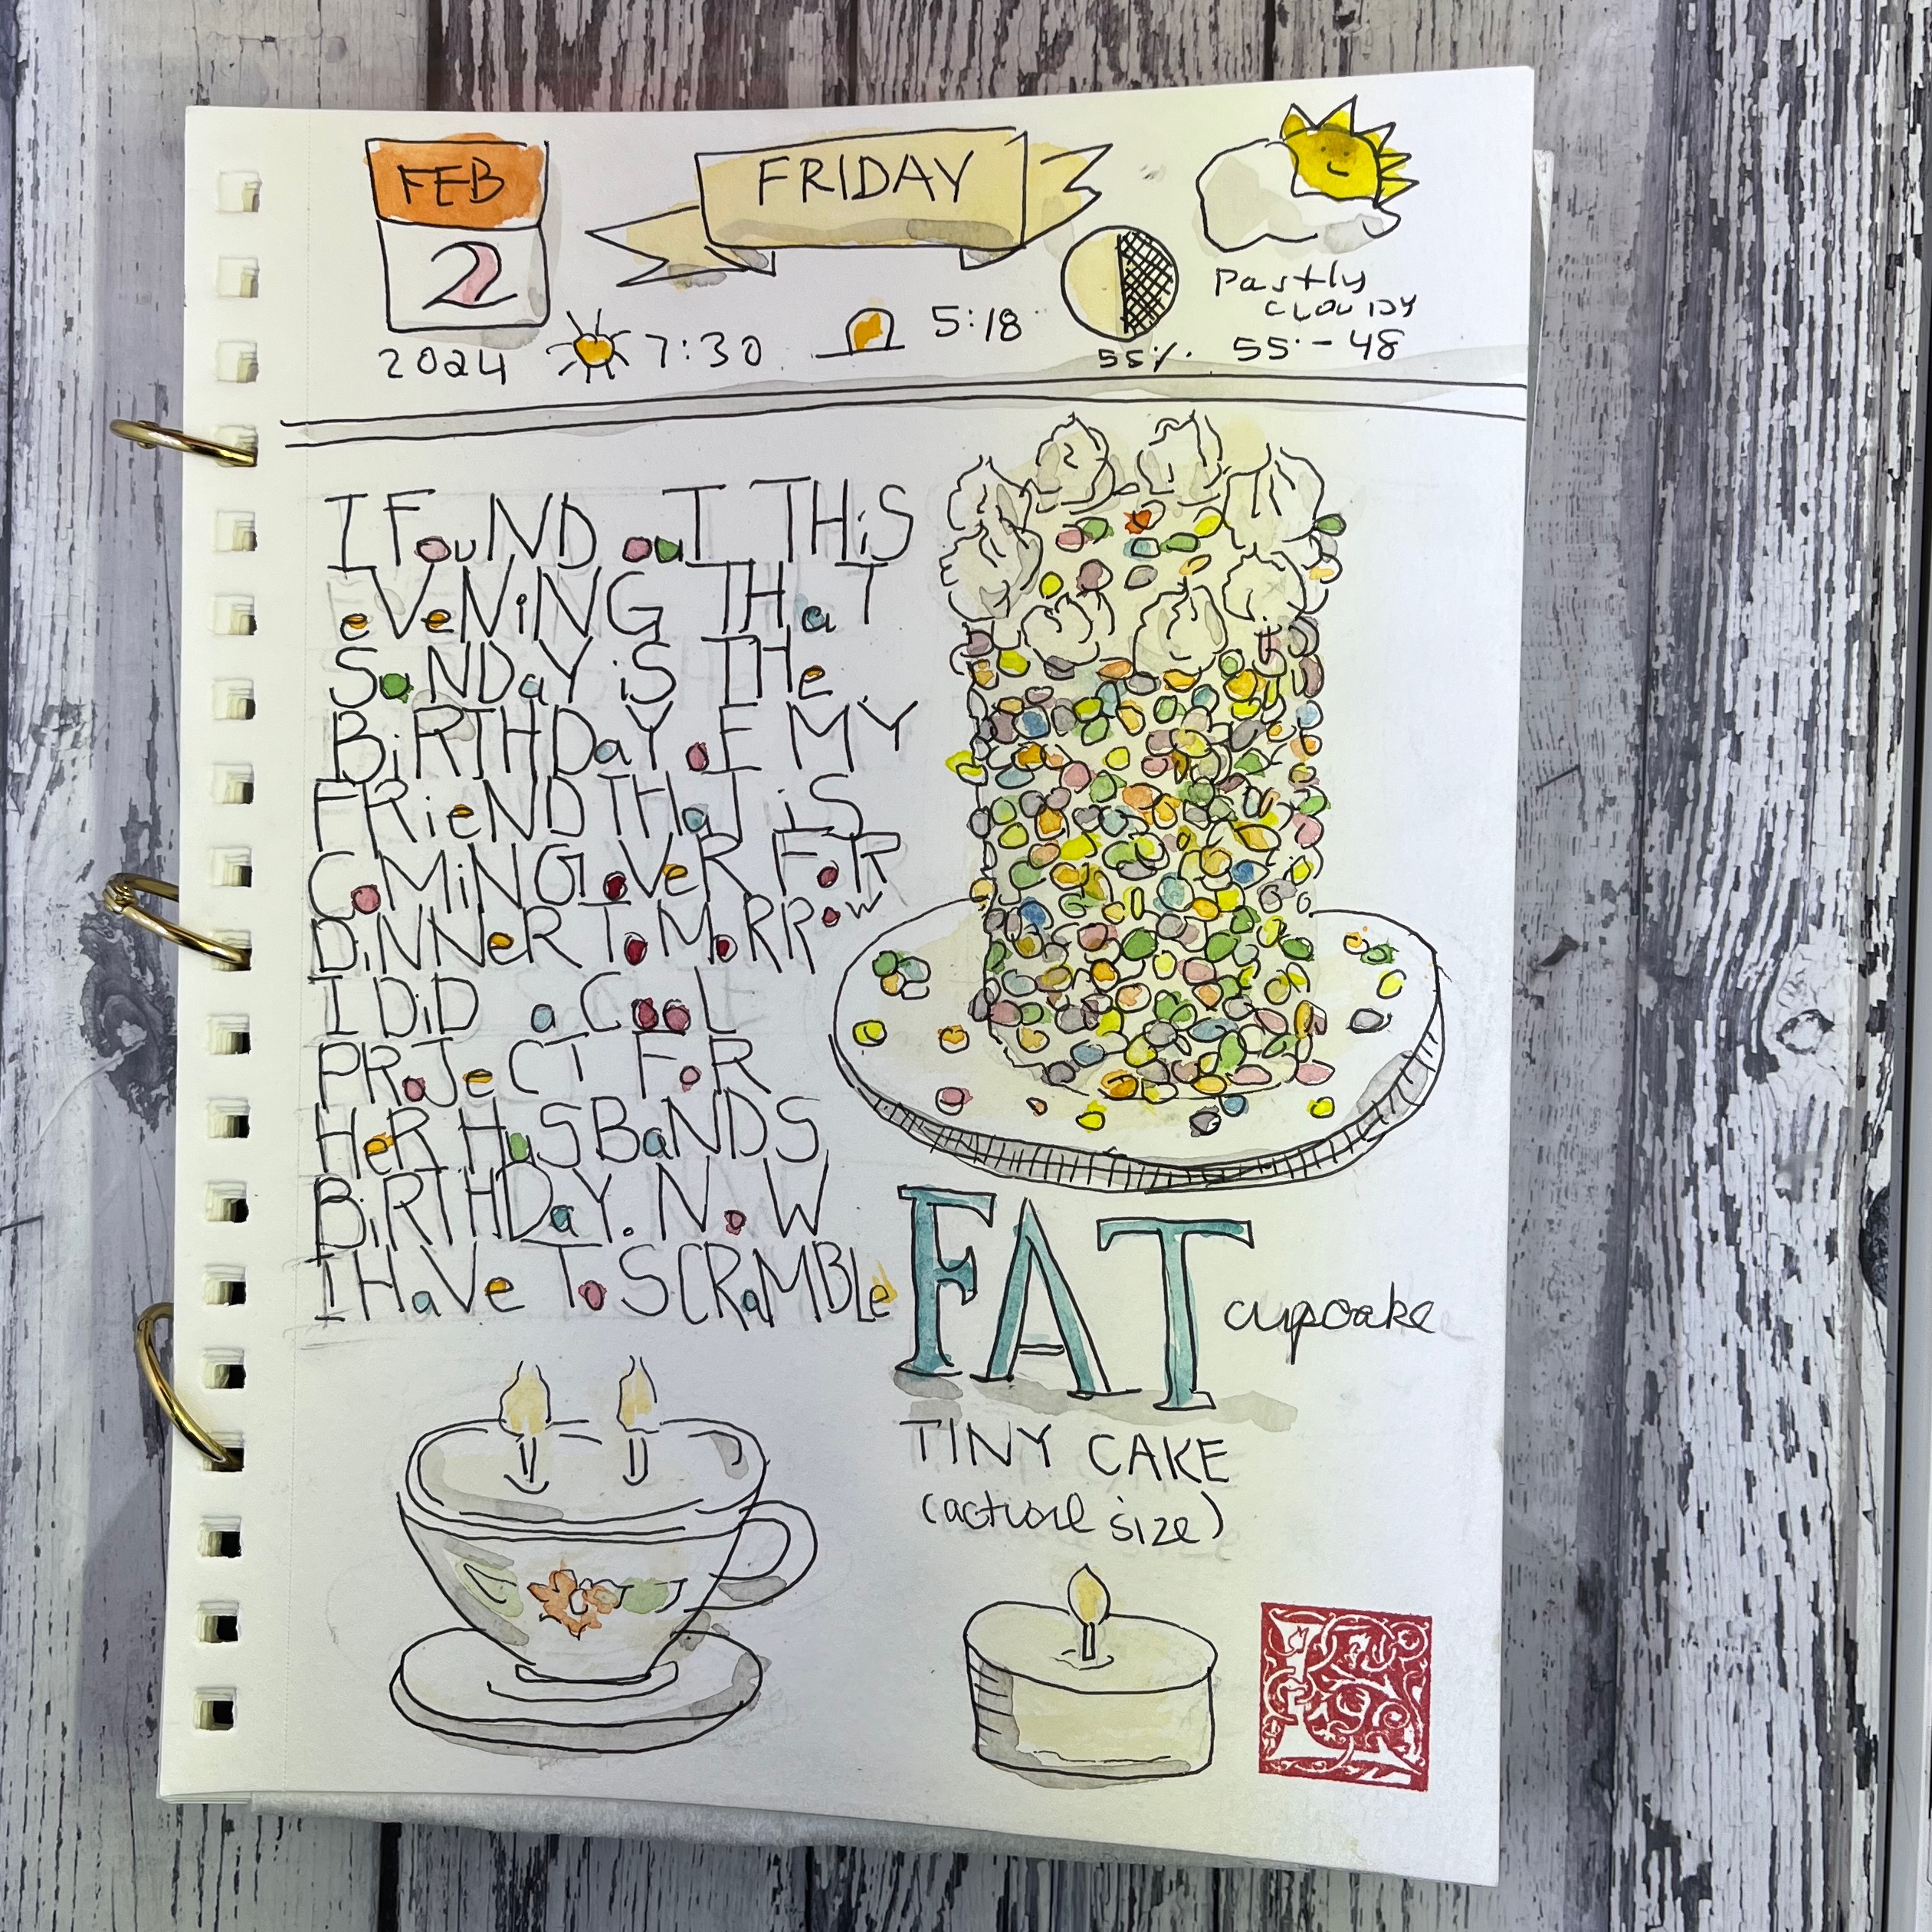 FEB
2
2024
FRIDAY
7:30
5:18
55%
Partly
CLOUDY
55°-48
I FouND ouT THiS
eVeNiNG THaT
SuNDaY iS THe
BiRTHDaY oF MY
FRieND THaT iS
CoMiNG oVeR FoR
DiNNeR ToMoRRoW
I DiD a CooL
PRoJeCT FoR
HeR HuSBaNDS
BiRTHDaY. NoW
I HaVe To SCRaMBLe
FAT cupcake
TINY CAKE
(actual size)